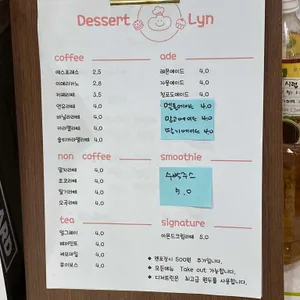 Dessert Lyn
coffee
에스프레소 2.5
아메리카노 2.8
카페라떼 3.5
연유라떼 4.0
바닐라라떼 4.0
카라멜라떼 4.0
솔티카라멜라떼 4.0
ade
레몬에이드 4.0
자몽에이드 4.0
청포도에이드 4.0
멜론에이드 4.0
망고에이드 4.0
딸기에이드 4.0
non coffee
말차라떼 4.0
초코라떼 4.0
딸기라떼 4.0
오곡라떼 4.0
smoothie
수박주스
5.0
tea
얼그레이 4.0
페퍼민트 4.0
캐모마일 4.0
루이보스 4.0
signature
아몬드크림라떼 5.0
♥ 샷추가시 500원 추가입니다.
♥ 모든메뉴 Take out 가능합니다.
♥ 디저트린은 최고급 원두를 사용합니다.